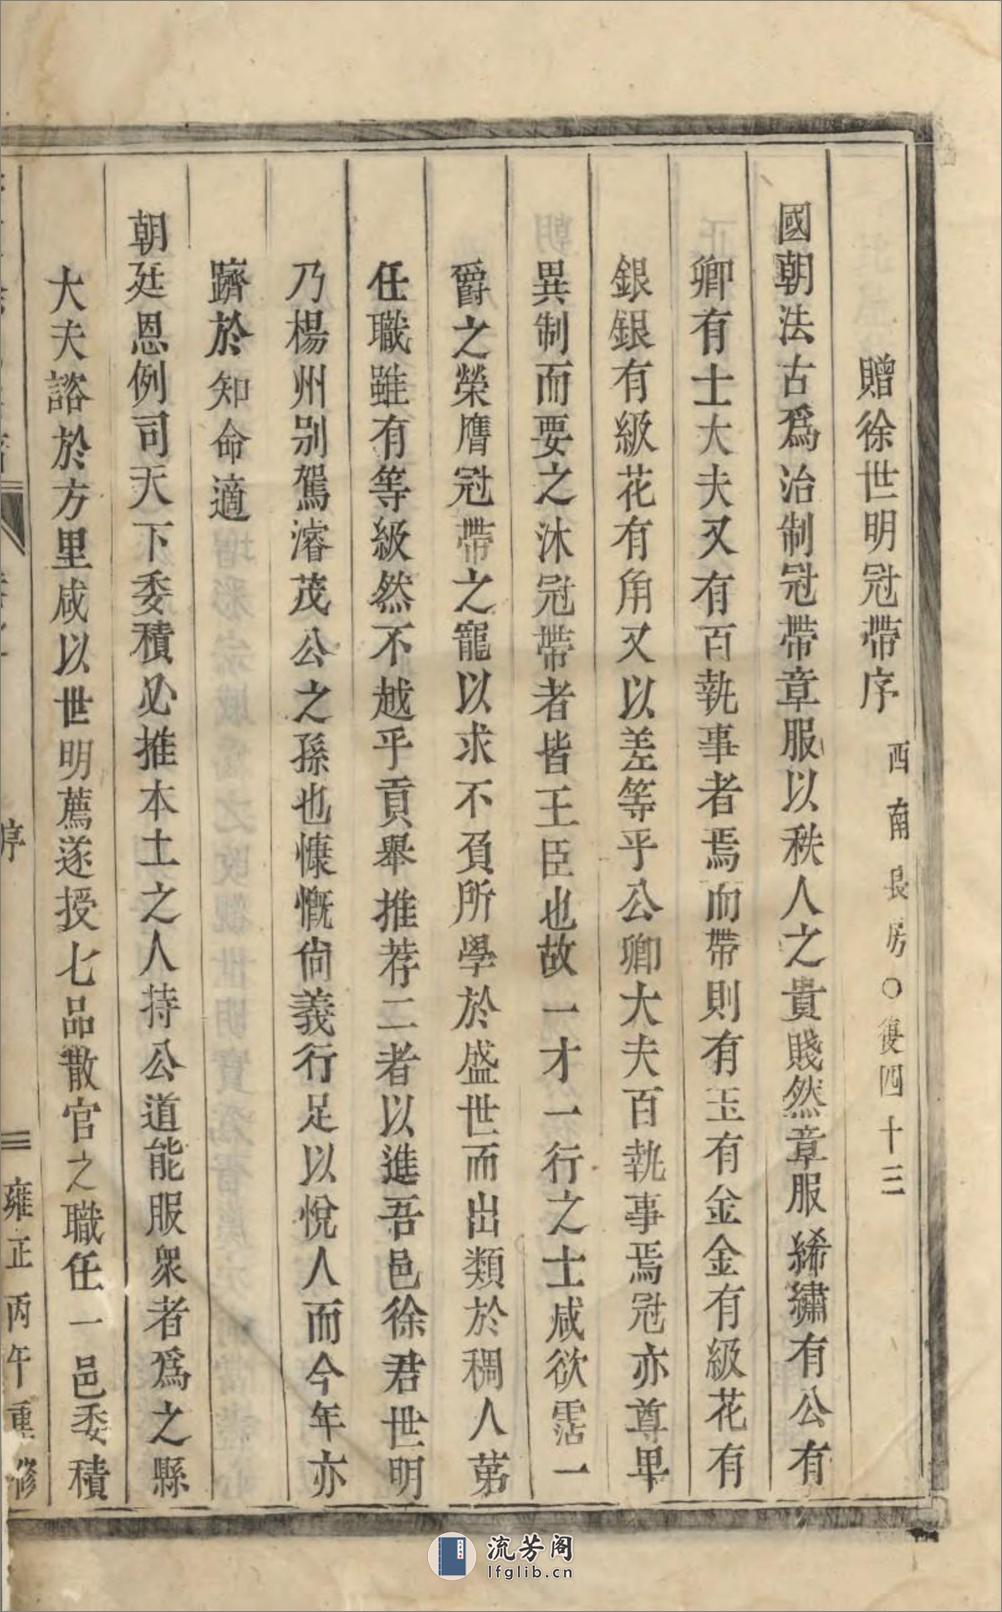 贈徐世明冠帶序 西南長房○復四十三
國朝法古爲治制冠帶章服以秩人之貴賤然章服絺繡有公有
卿有士大夫又有百執事者焉而帶則有玉有金金有級花有
銀銀有級花有角又以差等乎公卿大夫百執事焉冠亦尊卑
異制而要之沐冠帶者皆王臣也故一才一行之士咸欲霑一
爵之榮膺冠帶之寵以求不負所學於盛世而出類於稠人第
任職雖有等級然不越乎貢舉推荐二者以進吾邑徐君世明
乃楊州别駕濬茂公之孫也慷慨尙義行足以悅人而今年亦
躋於知命適
朝廷恩例司天下委積必推本土之人持公道能服衆者爲之縣
大夫諮於方里咸以世明薦遂授七品散官之職任一邑委積
序
雍正丙午重修
流芳阁
lfglib.cn